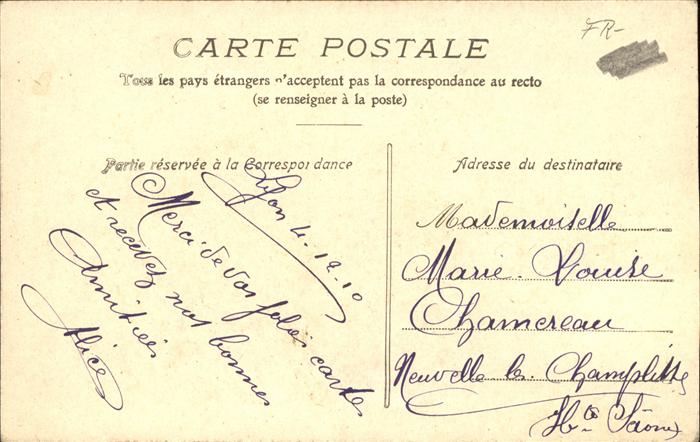 FR-
CARTE POSTALE
Tous les pays étrangers n'acceptent pas la correspondance au recto
(se renseigner à la poste)
Partie réservée à la Correspondance
Lyon 4-12-10
Merci de vos jolies cartes
et recevez nos bonnes
Amitiés
Alice
Adresse du destinataire
Mademoiselle
Marie-Louise
Chamereau
Neuvelle les Champlitte
Hte Saône